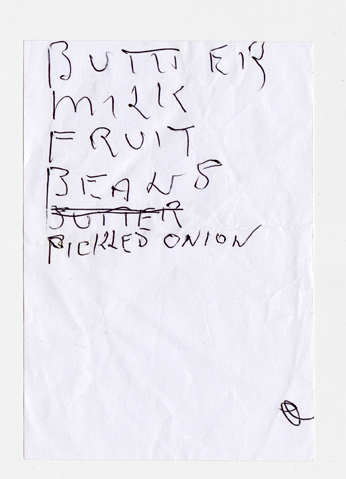 BUTTER
MILK
FRUIT
BEANS
BUTTER
PICKLED ONION